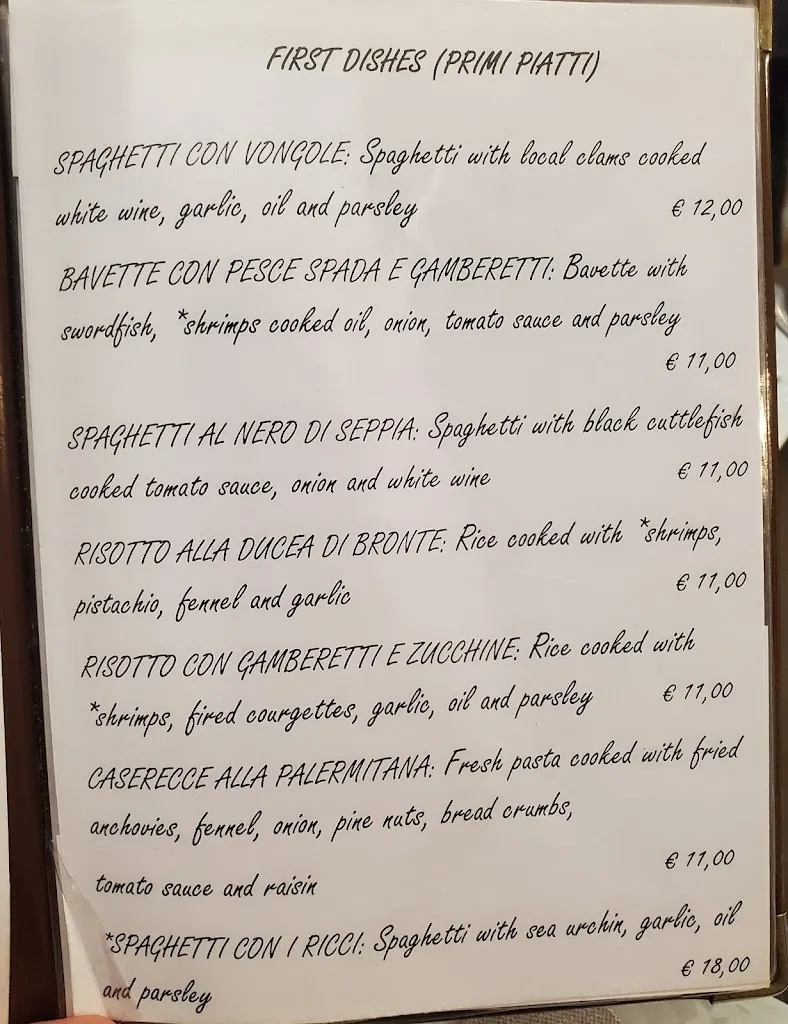 FIRST DISHES (PRIMI PIATTI)
SPAGHETTI CON VONGOLE: Spaghetti with local clams cooked
white wine, garlic, oil and parsley € 12,00
BAVETTE CON PESCE SPADA E GAMBERETTI: Bavette with
swordfish, *shrimps cooked oil, onion, tomato sauce and parsley
€ 11,00
SPAGHETTI AL NERO DI SEPPIA: Spaghetti with black cuttlefish
cooked tomato sauce, onion and white wine € 11,00
RISOTTO ALLA DUCEA DI BRONTE: Rice cooked with *shrimps,
pistachio, fennel and garlic € 11,00
RISOTTO CON GAMBERETTI E ZUCCHINE: Rice cooked with
*shrimps, fired courgettes, garlic, oil and parsley € 11,00
CASERECCE ALLA PALERMITANA: Fresh pasta cooked with fried
anchovies, fennel, onion, pine nuts, bread crumbs,
€ 11,00
tomato sauce and raisin
*SPAGHETTI CON I RICCI: Spaghetti with sea urchin, garlic, oil
and parsley € 18,00